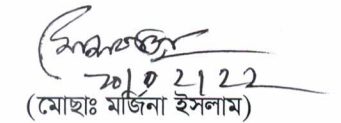 20/02/22
(মোছাঃ মর্জিনা ইসলাম)